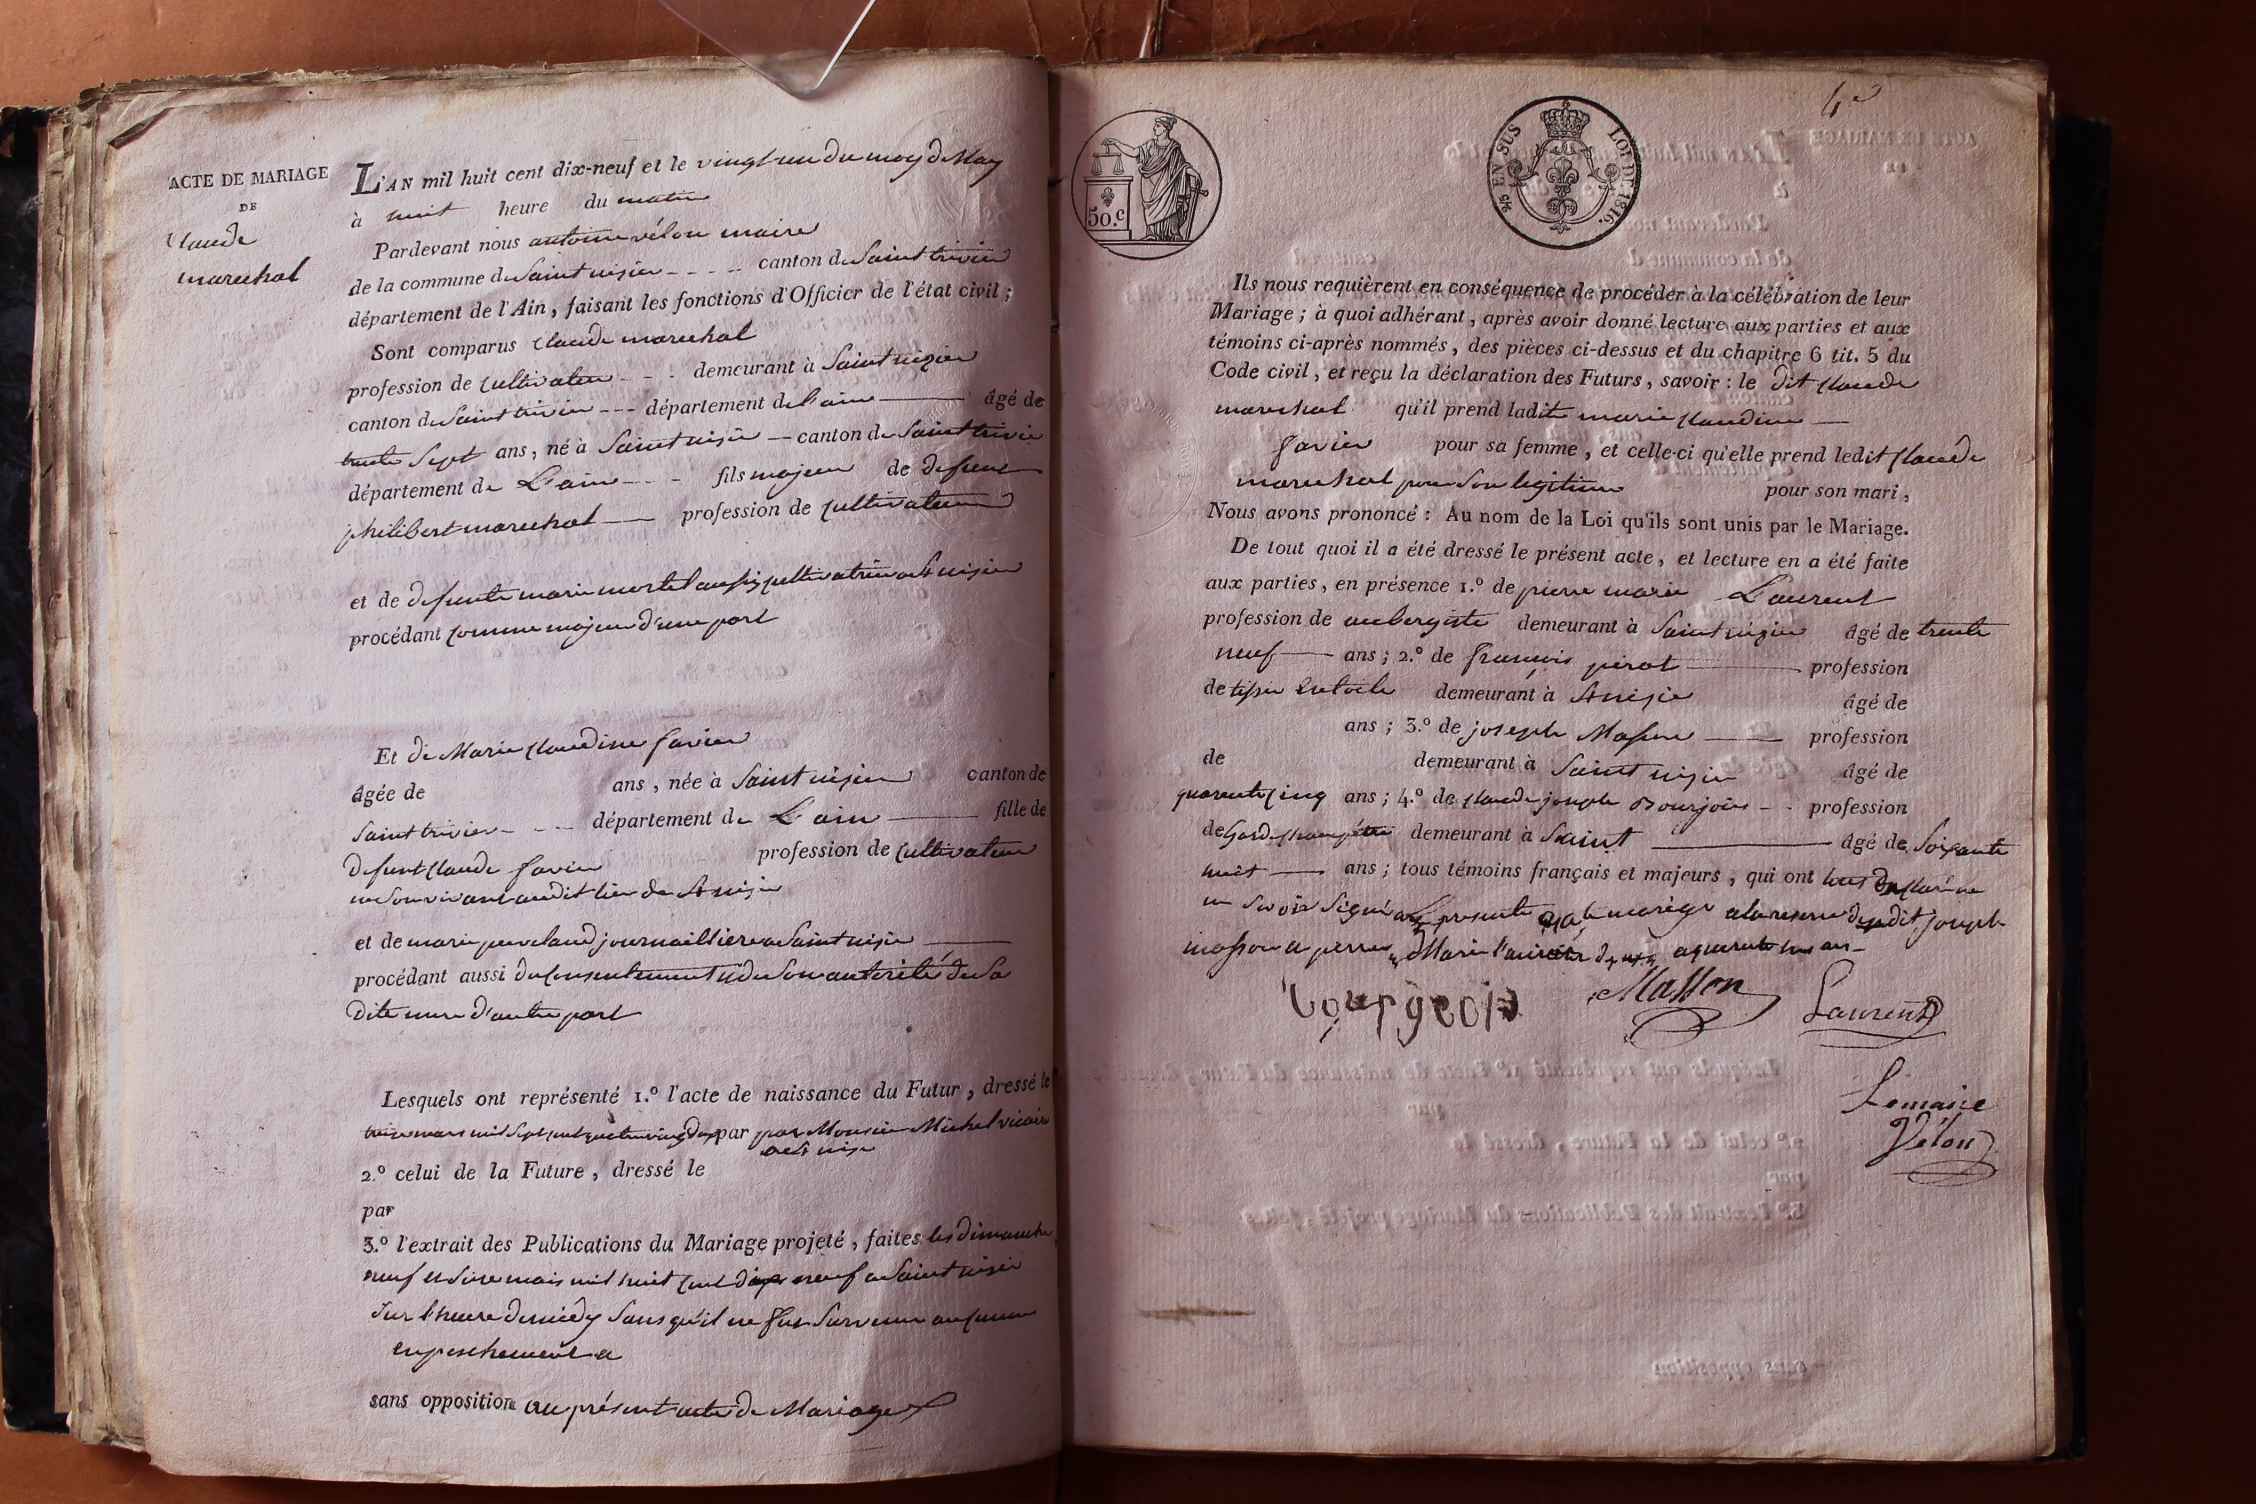 ACTE DE MARIAGE
DE
Claude
marechal
L'AN mil huit cent dix-neuf et le vingt un du moy de May
à huit heure du matin
Pardevant nous antoine vélon maire
de la commune de Saint nizier canton de Saint trivier
département de l'Ain, faisant les fonctions d'Officier de l'état civil;
Sont comparus Claude marechal
profession de Cultivateur demeurant à Saint nizier
canton de Saint trivier département de l'ain âgé de
trente Sept ans, né à Saint nizier canton de Saint trivier
département de L'ain fils majeur de defunt
philibert marechal profession de Cultivateur
et de defunte marie mortel aussy cultivatrice a St nizier
procédant comme majeur d'une part
Et de Marie Claudine favier
âgée de ans, née à Saint nizier canton de
Saint trivier département de L'ain fille de
defunt Claude favier profession de Cultivateur
de Son vivant audit lieu de St nizier
et de marie journaillière a Saint nizier
procédant aussi du consentement et de Son autorité de Sa
dite mere d'autre part
Lesquels ont représenté 1.º l'acte de naissance du Futur, dressé le
mars mil Sept cent quatre vingt par par Monsieur Michel vicaire
a St nizier
2.º celui de la Future, dressé le
par
3.º l'extrait des Publications du Mariage projeté, faites les dimanche
neuf et Seize mais mil huit cent dix neuf a Saint nizier
Sur l'heure de midy Sans qu'il ne Soit Survenu aucune
enpeschement a
sans opposition au présent acte de Mariage
4e
50.c
5/6 EN SUS
LOI DE 1816.
Ils nous requièrent en conséquence de procéder à la célébration de leur
Mariage; à quoi adhérant, après avoir donné lecture aux parties et aux
témoins ci-après nommés, des pièces ci-dessus et du chapitre 6 tit. 5 du
Code civil, et reçu la déclaration des Futurs, savoir: le dit Claude
marechal qu'il prend ladite marie Claudine
favier pour sa femme, et celle-ci qu'elle prend ledit Claude
marechal pour Son legitime pour son mari,
Nous avons prononcé: Au nom de la Loi qu'ils sont unis par le Mariage.
De tout quoi il a été dressé le présent acte, et lecture en a été faite
aux parties, en présence 1.º de pierre marie Laurent
profession de aubergiste demeurant à Saint nizier âgé de trente
neuf ans; 2.º de françois pirat profession
de tissier en toile demeurant à St nizier âgé de
ans; 3.º de joseph Masson profession
de demeurant à Saint nizier âgé de
quarente cinq ans; 4.º de Claude joseph Bourjois profession
de Garde champêtre demeurant à Saint âgé de Soixante
huit ans; tous témoins français et majeurs, qui ont tous declaré ne
Savoir Signé presente mariage a la reserve dudit joseph
masson a pierre Marie
Bourgeois
Masson
Laurent
Lemaire
Vélon